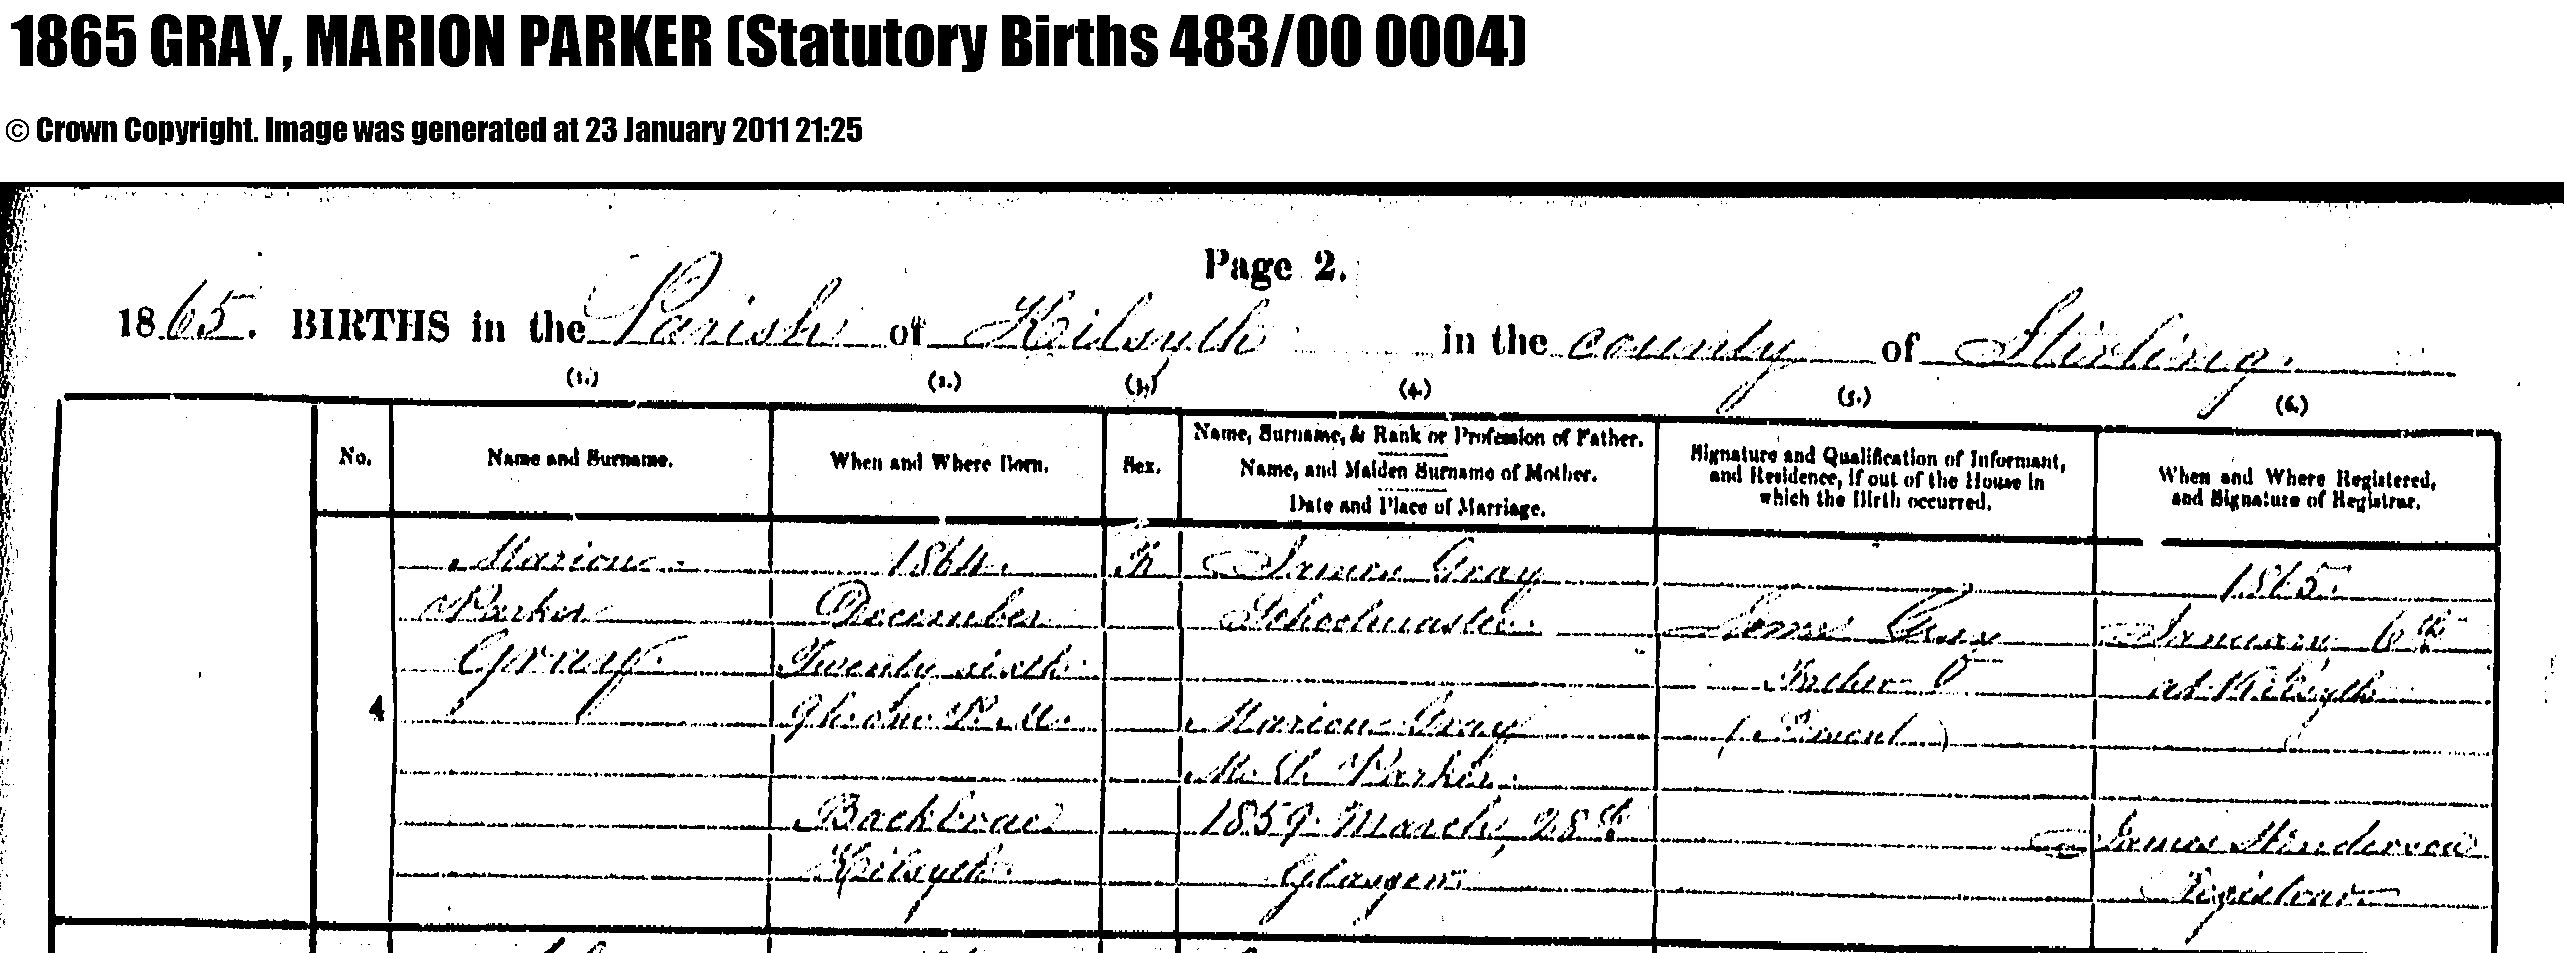 1865 GRAY, MARION PARKER (Statutory Births 483/00 0004)
© Crown Copyright. Image was generated at 23 January 2011 21:25
Page 2.
1865. BIRTHS in the Parish of Kilsyth in the county of Stirling.
(1.) (2.) (3.) (4.) (5.) (6.)
No.
Name and Surname.
When and Where Born.
Sex.
Name, Surname, & Rank or Profession of Father.
Name, and Maiden Surname of Mother.
Date and Place of Marriage.
Signature and Qualification of Informant,
and Residence, if out of the House in
which the Birth occurred.
When and Where Registered,
and Signature of Registrar.
4
Marion
Parker
Gray
1864.
December
Twenty sixth
P. M.
Backbrae
Kilsyth
F
James Gray
Schoolmaster
Marion Gray
M. S. Parker
1859 March, 28th
Glasgow
James Gray
Father
(Present)
1865.
January 6th
at Kilsyth
James Henderson
Registrar